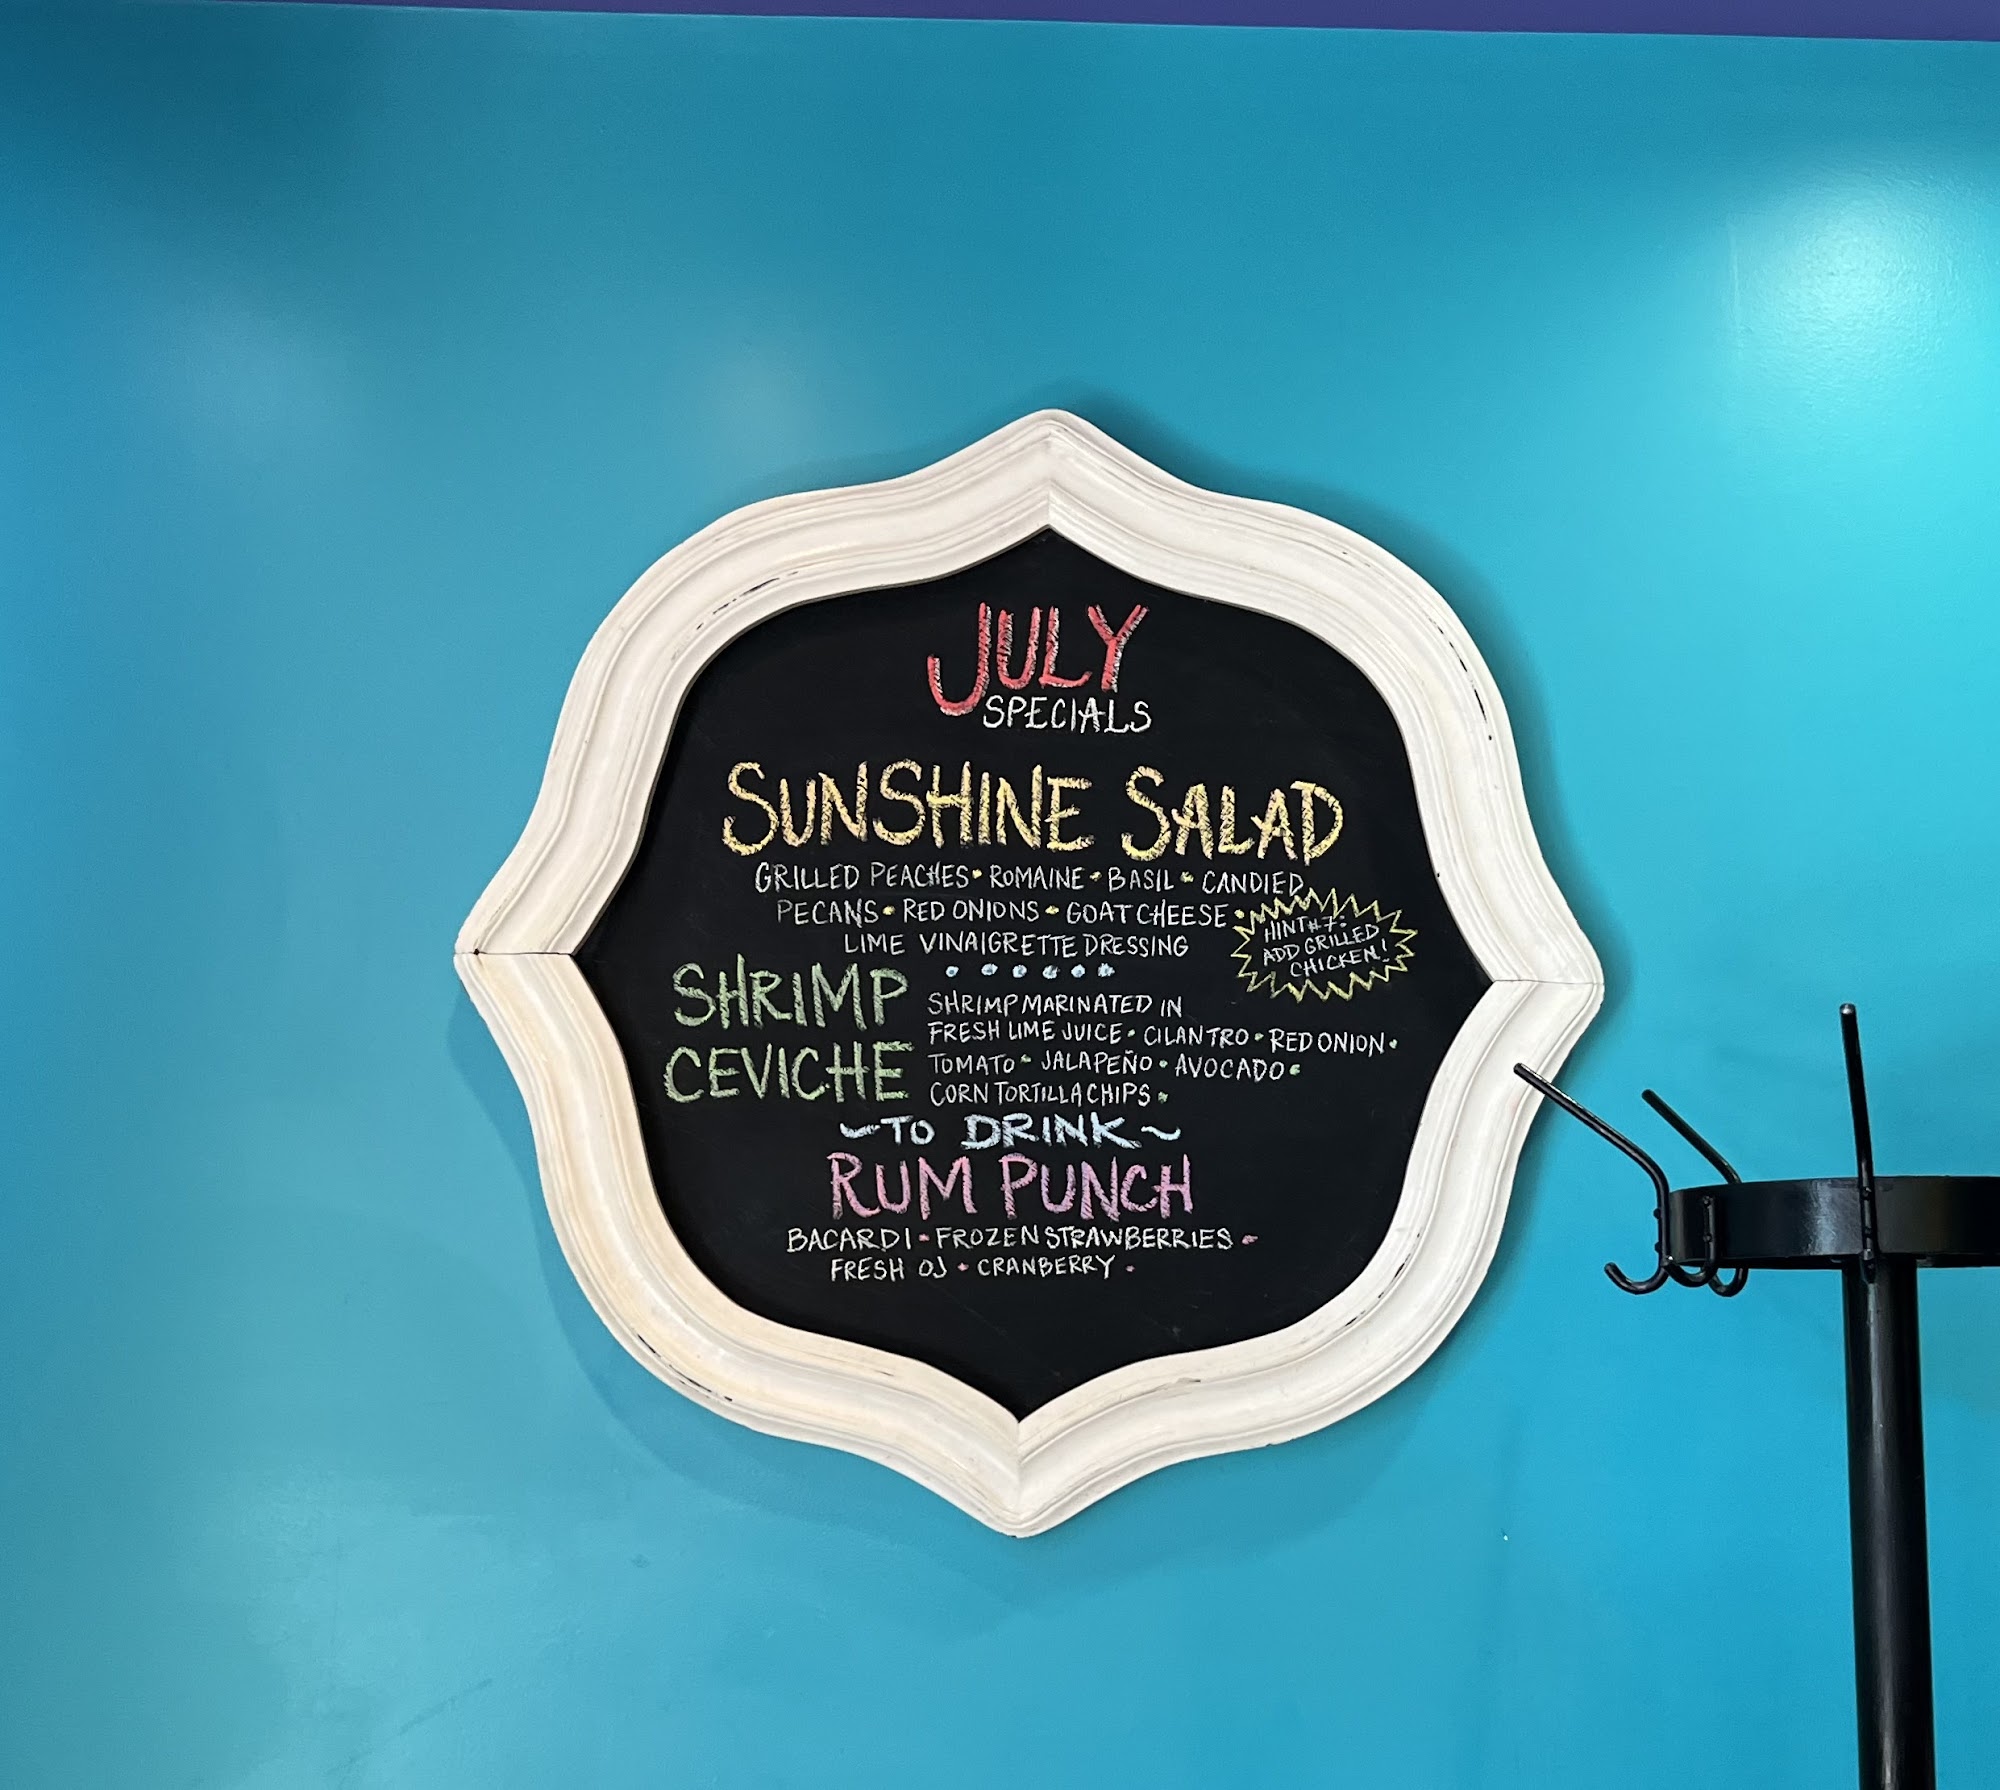 JULY
SPECIALS
SUNSHINE SALAD
GRILLED PEACHES • ROMAINE • BASIL • CANDIED
PECANS • RED ONIONS • GOAT CHEESE •
LIME VINAIGRETTE DRESSING
HINT #7:
ADD GRILLED
CHICKEN!
SHRIMP
CEVICHE
SHRIMP MARINATED IN
FRESH LIME JUICE • CILANTRO • RED ONION •
TOMATO • JALAPEÑO • AVOCADO •
CORN TORTILLA CHIPS •
~TO DRINK~
RUM PUNCH
BACARDI • FROZEN STRAWBERRIES •
FRESH OJ • CRANBERRY •